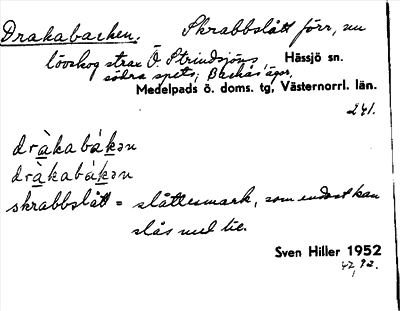 Drakabacken. Skrabbslått förr, nu
lövskog strax Ö. Strindsjöns Hässjö sn.
södra spets; Backås' ägor,
Medelpads ö. doms. tg, Västernorrl. län.
241.
dràkabák̲ən
dràkabák̲ən
skrabbslått = slåttesmark, som endast kan
slås med lie.
Sven Hiller 1952
42,92.